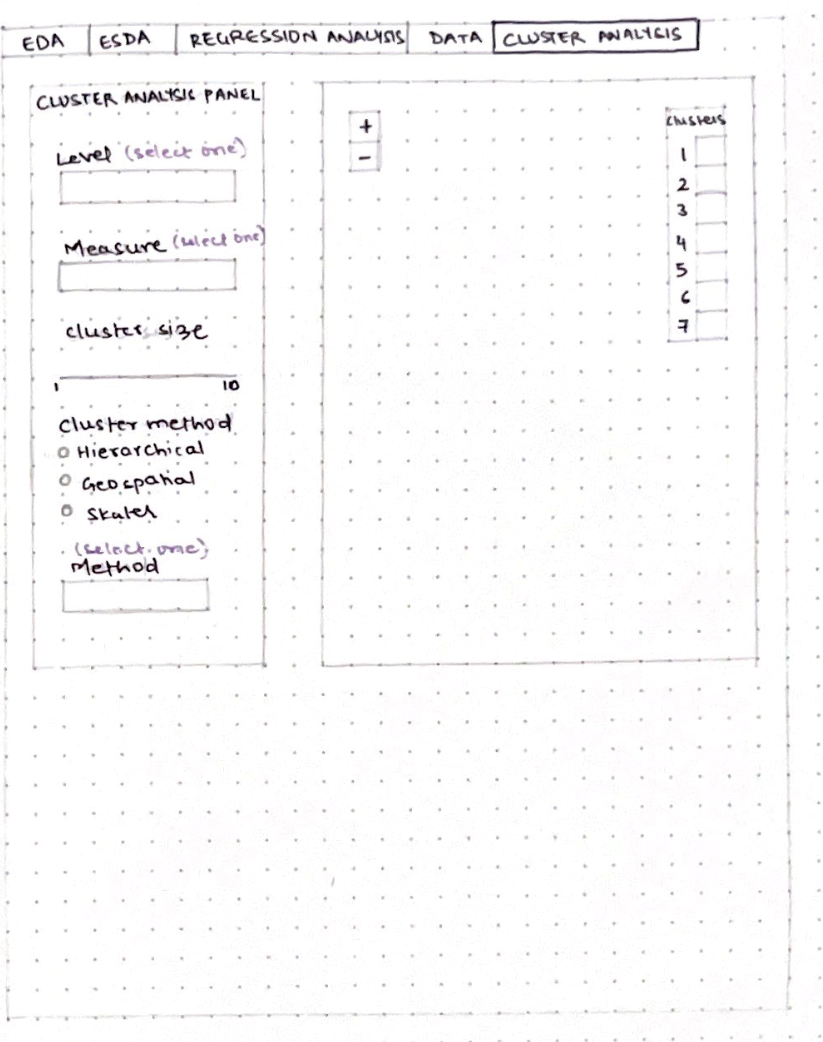 EDA ESDA REGRESSION ANALYSIS DATA CLUSTER ANALYSIS
CLUSTER ANALYSIS PANEL
Level (select one)
Measure (select one)
cluster size
1 10
cluster method
Hierarchical
Geospatial
Skater
(select one)
Method
+
-
clusters
1
2
3
4
5
6
7